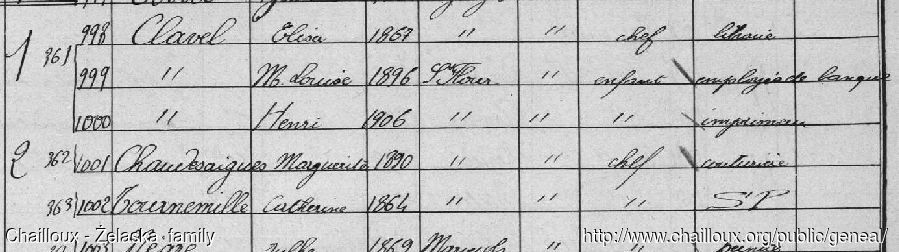 1 361 998 Clavel Elisa 1867 " " chef libraire
999 " M. Louise 1896 St Flour " enfant employée de banque
1000 " Henri 1906 " " " imprimeur
2 362 1001 Chaudesaigues Marguerite 1890 " " chef couturière
363 1002 Tournemille Catherine 1864 " " " SP
1003 1869 "
Chailloux - Żelaska family
http://www.chailloux.org/public/geneal/